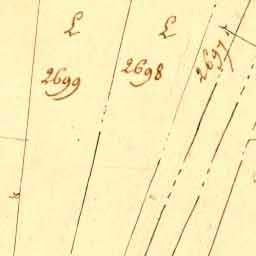 L
L
2699
2698
2697